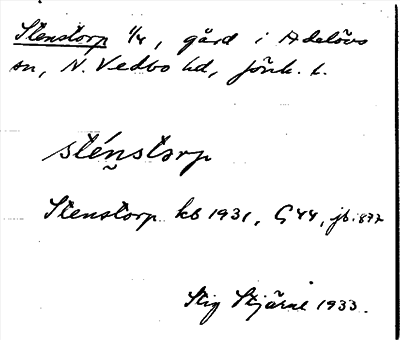 Stenstorp 1/4, gård i Adelövs
sn, N. Vedbo hd, Jönk. l.
sténstorp
Stenstorp kb 1931, G44, jb 1877
Stig Stjärne 1933.